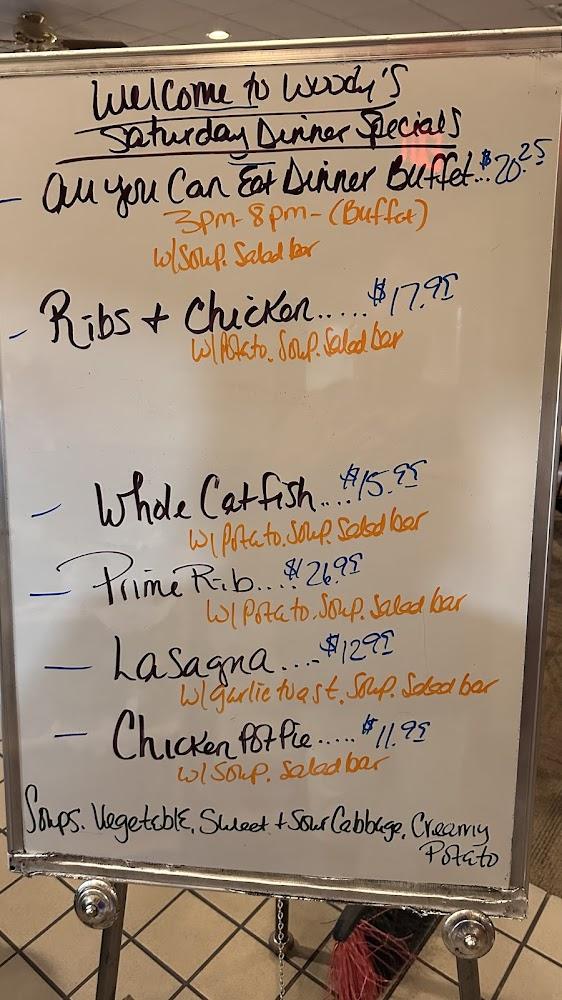 Welcome to Woody's
Saturday Dinner Specials
- All You Can Eat Dinner Buffet...$20.25
3pm-8pm-(Buffet)
w/Soup. Salad bar
- Ribs + Chicken.....$17.95
w/Potato. Soup. Salad bar
- Whole Catfish....$15.95
w/Potato. Soup. Salad bar
- Prime Rib....$26.95
w/Potato. Soup. Salad bar
- Lasagna....$12.95
w/garlic toast. Soup. Salad bar
- Chicken Pot Pie.....$11.95
w/Soup. Salad bar
Soups. Vegetable, Sweet + Sour Cabbage, Creamy
Potato